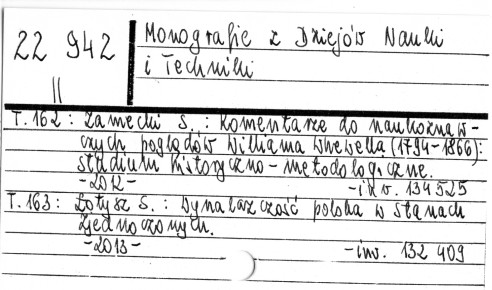 22 942
II
Monografie z Dziejów Nauki
i Techniki
T. 162: Zamecki S.: Komentarze do naukoznaw-
czych poglądów Williama Whewella (1794-1866):
studium historyczno-metodologiczne.
-2012- -inw. 134525
T. 163: Łotysz S.: Wynalazczość polska w Stanach
Zjednoczonych.
-2013- -inw. 132 409